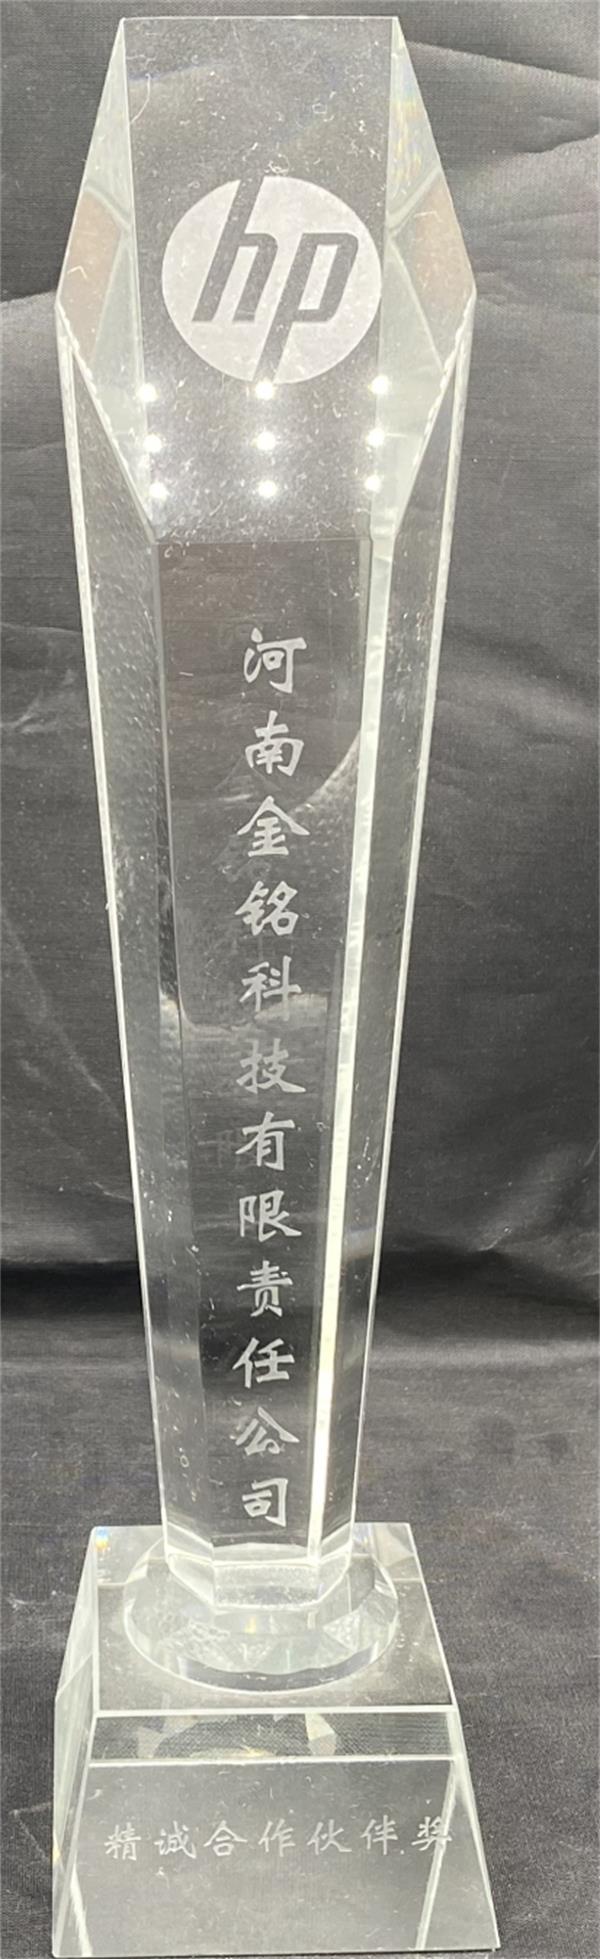 hp
河南金铭科技有限责任公司
精诚合作伙伴奖